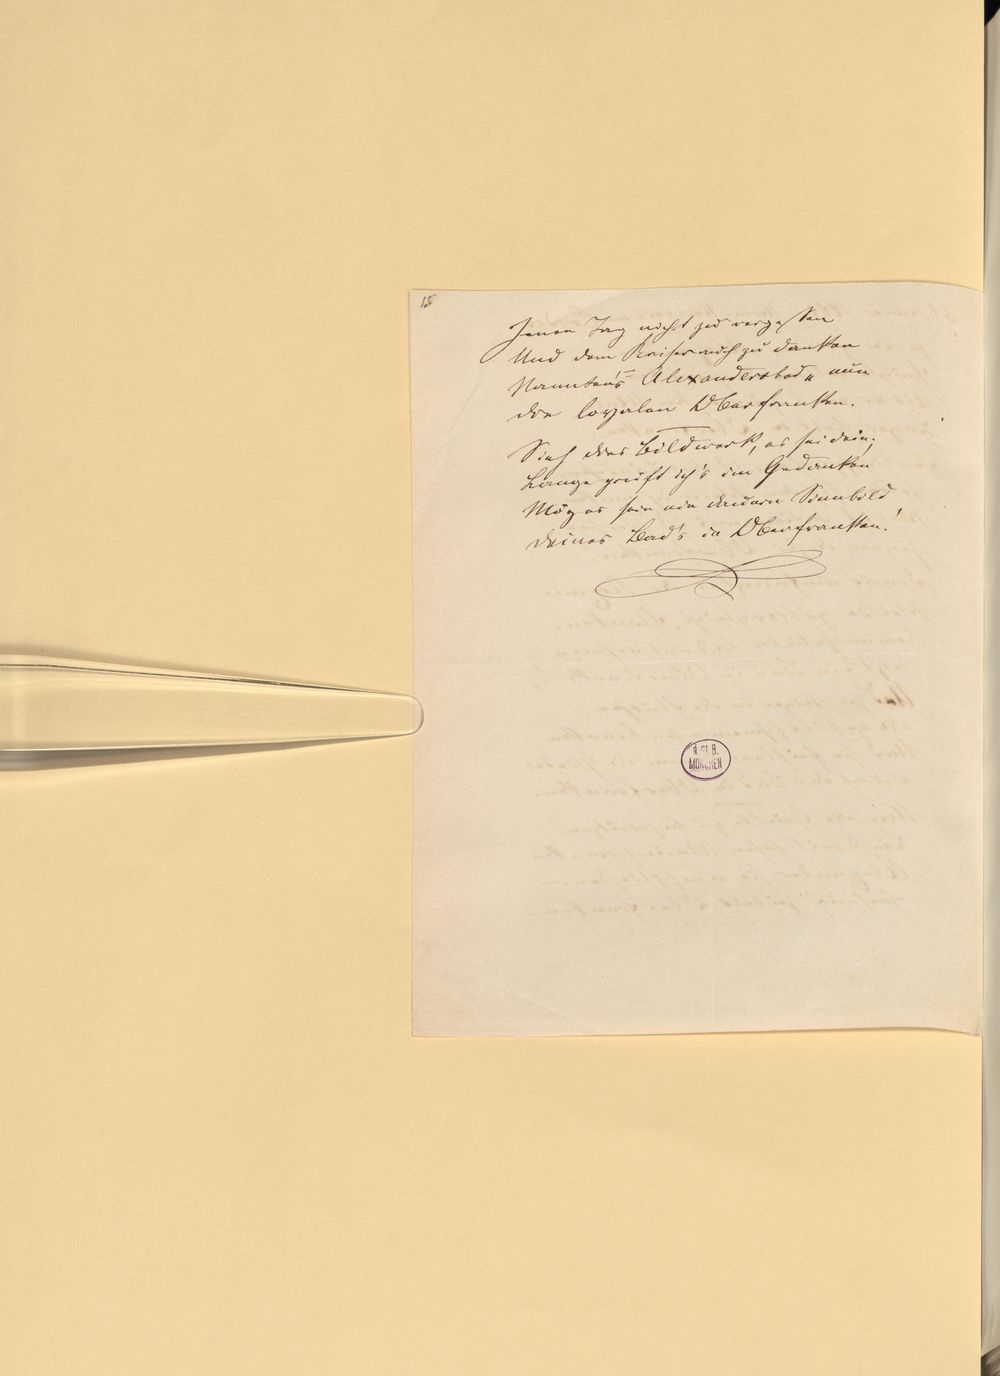 15
Jenen Tag nicht zu vergessen
Und dem Kaiser auch zu danken
Nannten's "Alexandersbad" nun
die loyalen Oberfranken.
Sieh dies Bildwerk, es sei dein;
Lange prüft ich's in Gedanken
Mög es sein ein Sinnbild
deines Bad's in Oberfranken!
B. ST. B.
MÜNCHEN